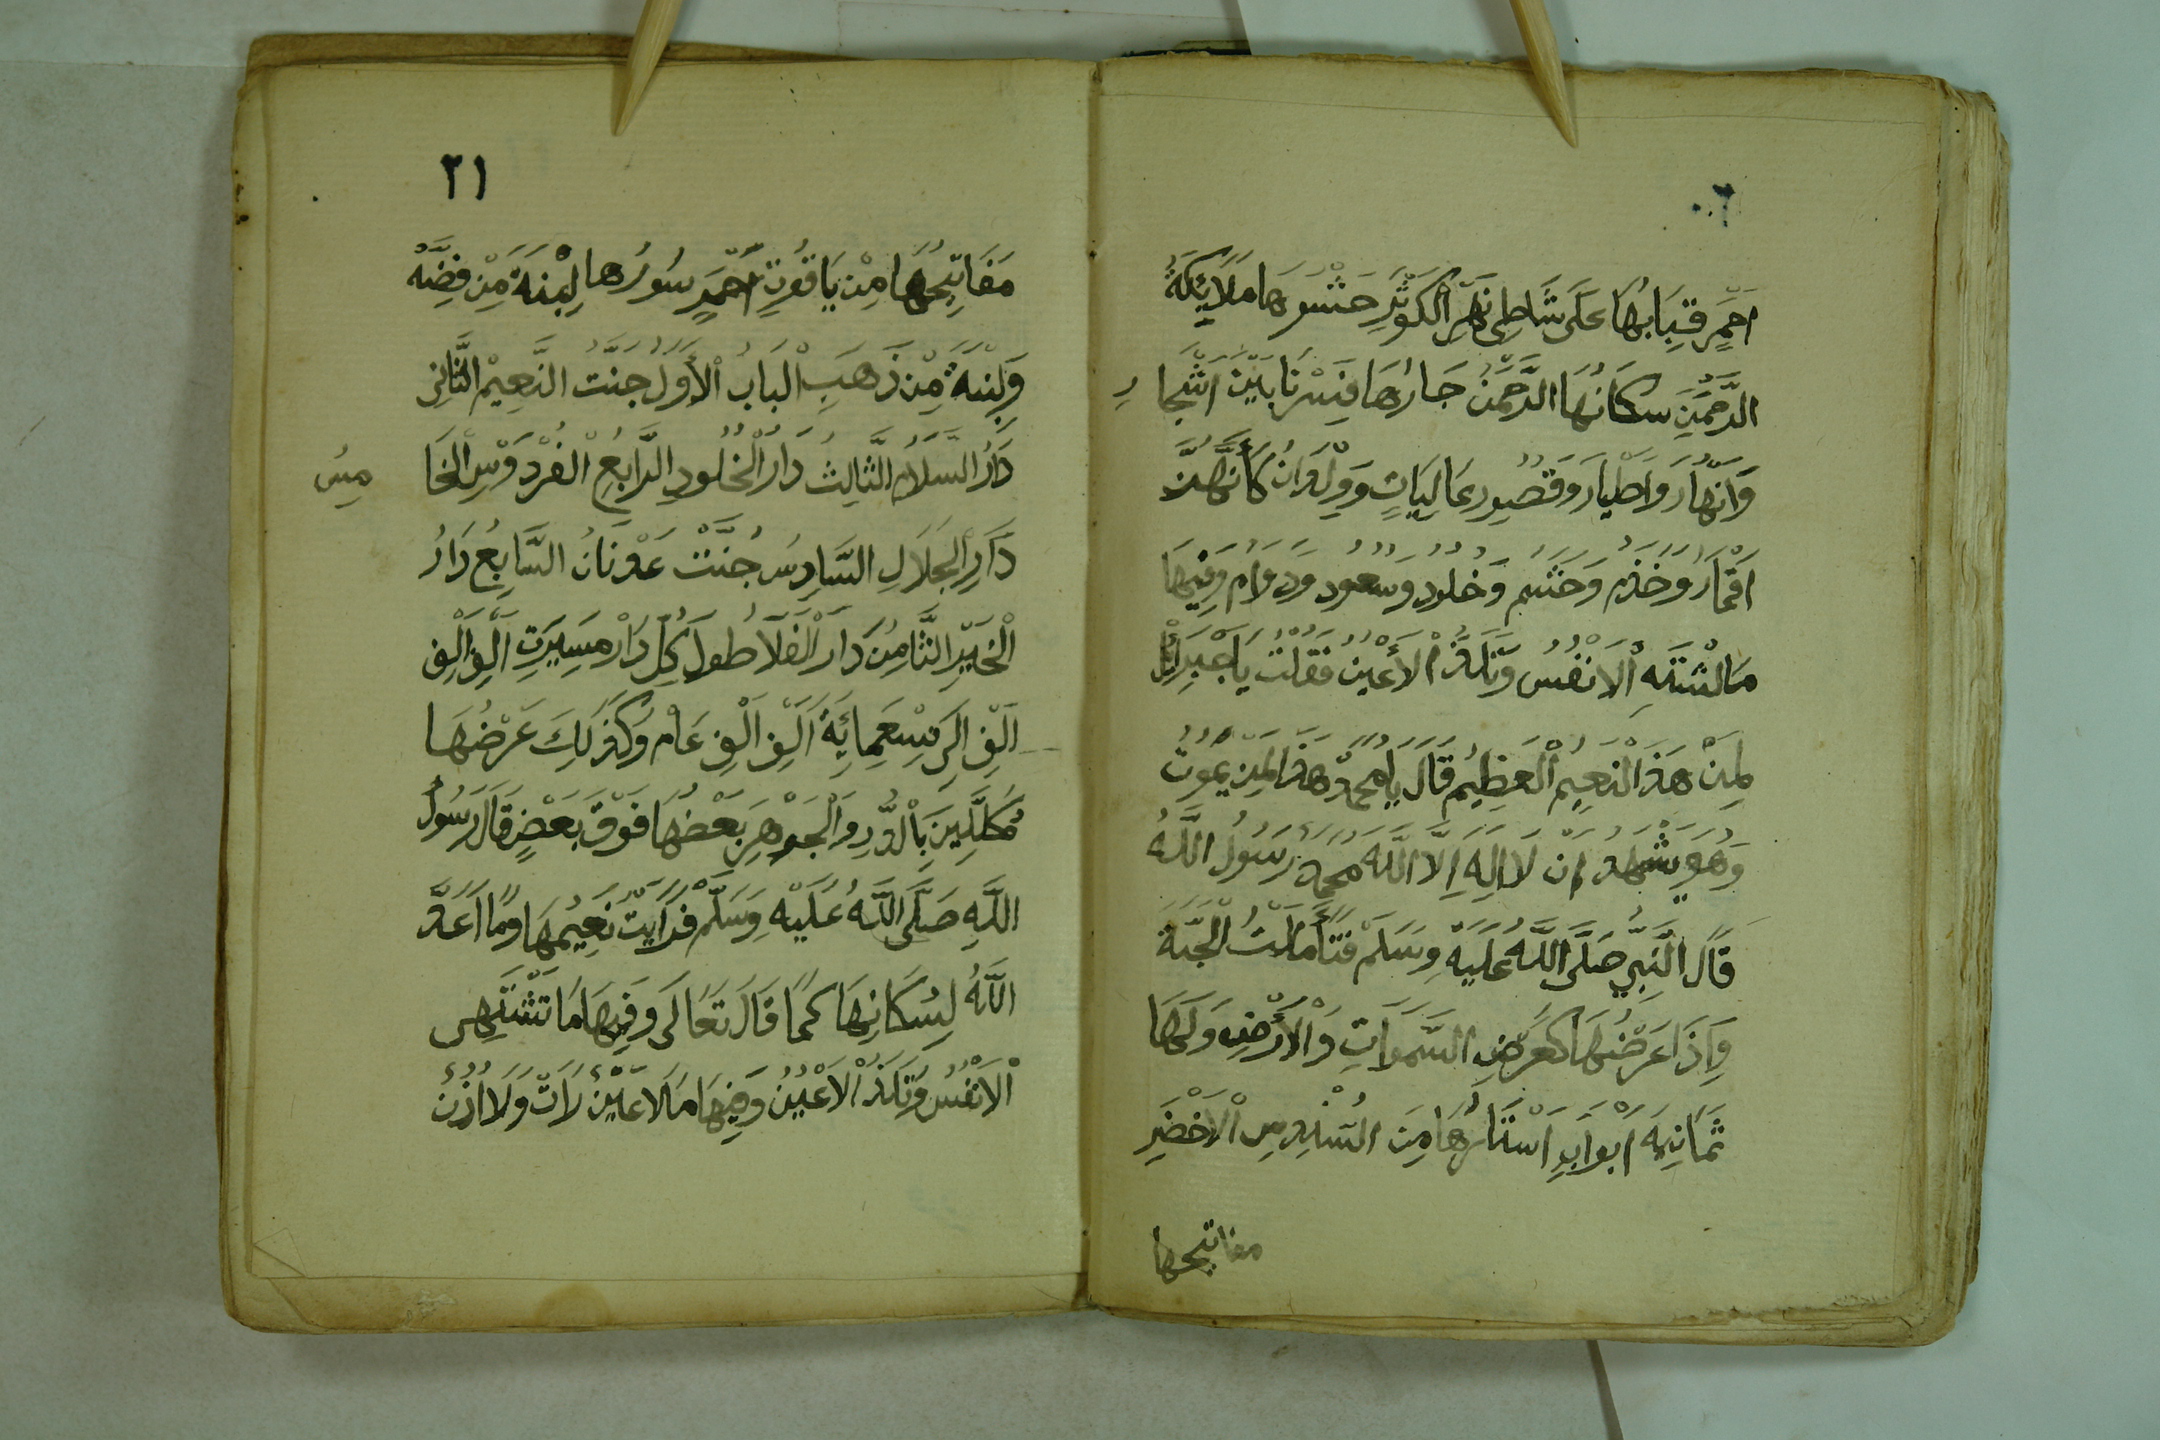 ٢٠
احمر قبابها على شاطى نهر الكوثر حشوها ملائكة
الرحمن سكانها الرحمن جارها فسرنا بين اشجار
وانهار واطيار وقصور عاليات وولدان كأنهن
اقمار وخدم وحشم وخلود وسعود ودوام وفيها
ما تشتهه الانفس وتلذ الأعين فقلت يا جبرائل
لمن هذ النعيم العظيم قال يا محمد هذا لمن يموت
وهو يشهد ان لا اله الا الله محمد رسول الله
قال النبي صلى الله عليه وسلم فتأملت الجنة
واذا عرضها كعرض السموات والأرض ولها
ثمانيه ابواب استارها من السندس الاخضر
مفاتيحها
٢١
مفاتيحها من ياقوت احمر سورها لبنة من فضه
ولبنة من ذهب الباب الأول جنت النعيم الثانى
دار السلام الثالث دار الخلود الرابع الفردوس الخا
مس
دار الجلال السادس جنت عدنان السابع دار
الخير الثامن دار الفلا طول كل دار مسيرت الف الف
الف الى تسعمائة الف الف عام وكذلك عرضها
مكللين بالدر والجوهر بعضها فوق بعض قال رسول
الله صلى الله عليه وسلم فرايت نعيمها وما اعد
الله لسكانها كما قال تعالى وفيها ما تشتهى
الانفس وتلذ الاعين وفيها ما لا عين رات ولا اذن